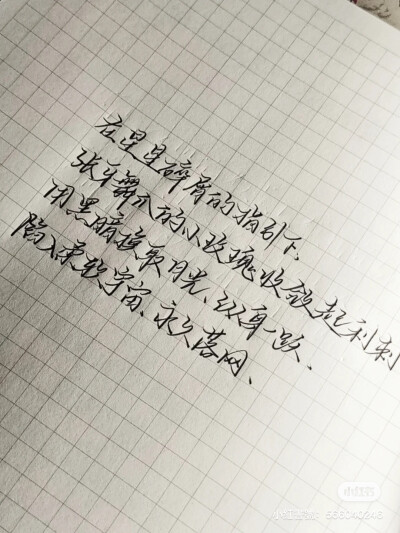 在星星碎屑的指引下、
张牙舞爪的小玫瑰收敛起利刺
用黑暗换取月光、纵身一跃、
陷入柔软宇宙、永久落网、
小红书
小红书号：566040246